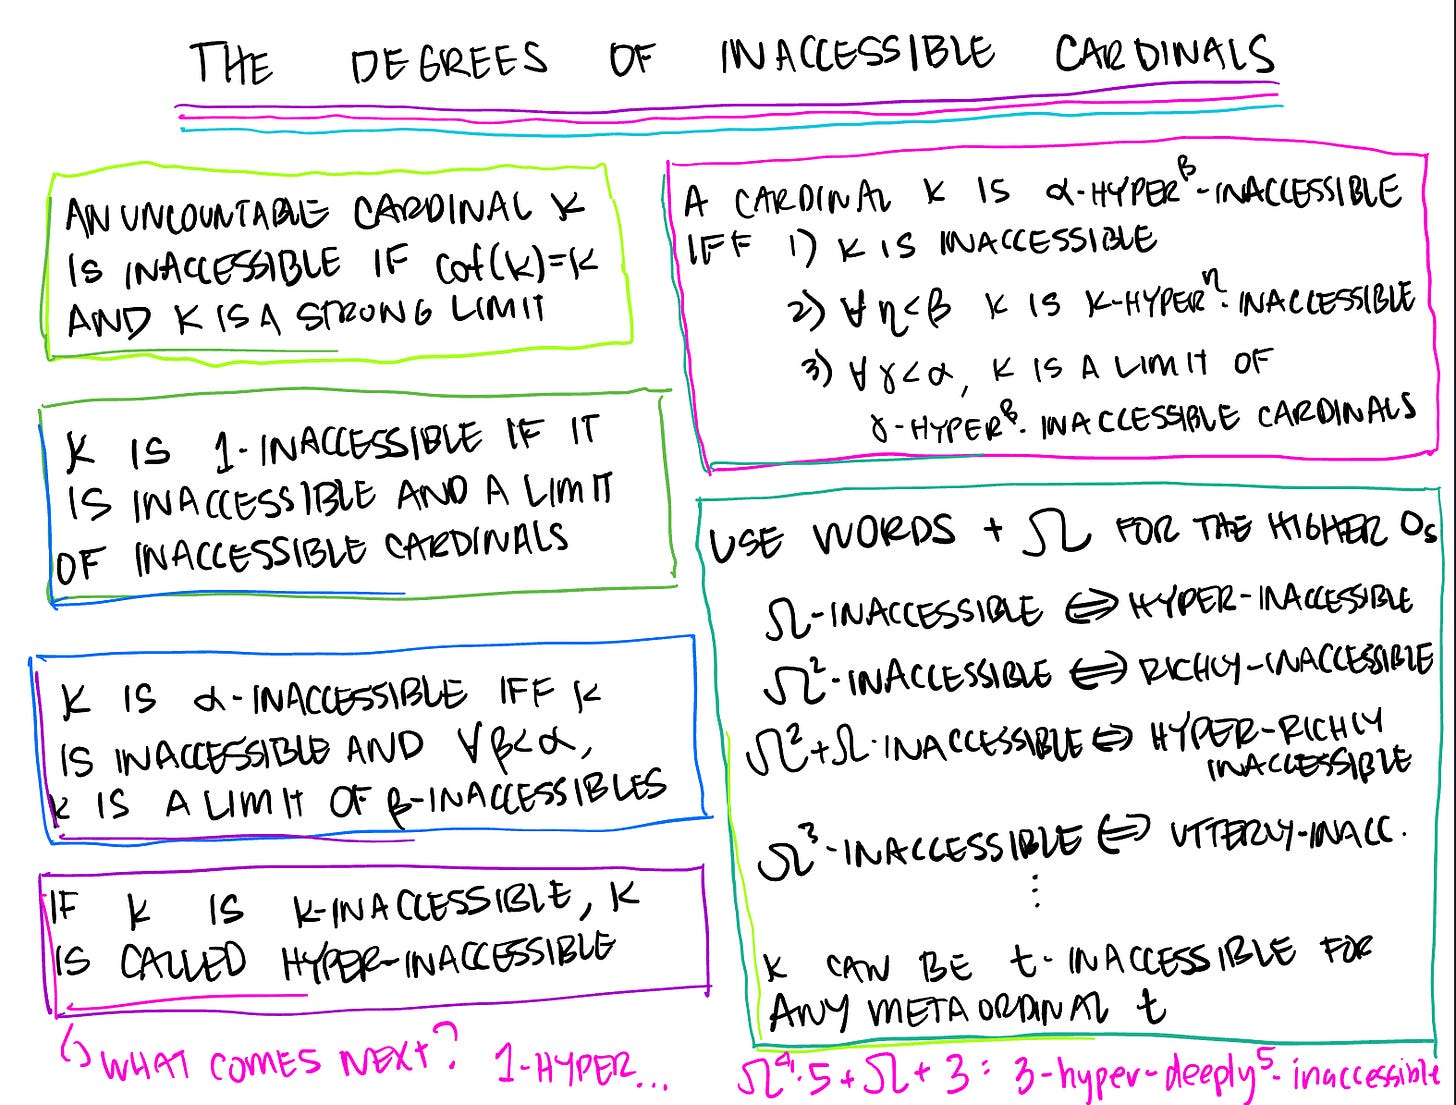 THE DEGREES OF INACCESSIBLE CARDINALS
AN UNCOUNTABLE CARDINAL K
IS INACCESSIBLE IF cof(K)=K
AND K IS A STRONG LIMIT
K IS 1-INACCESSIBLE IF IT
IS INACCESSIBLE AND A LIMIT
OF INACCESSIBLE CARDINALS
K IS α-INACCESSIBLE IFF K
IS INACCESSIBLE AND ∀β<α,
K IS A LIMIT OF β-INACCESSIBLES
IF K IS K-INACCESSIBLE, K
IS CALLED HYPER-INACCESSIBLE
↳ WHAT COMES NEXT? 1-HYPER...
A CARDINAL K IS α-HYPER^β-INACCESSIBLE
IFF 1) K IS INACCESSIBLE
2) ∀η<β K IS K-HYPER^η-INACCESSIBLE
3) ∀γ<α, K IS A LIMIT OF
γ-HYPER^β-INACCESSIBLE CARDINALS
USE WORDS + Ω FOR THE HIGHER Os
Ω-INACCESSIBLE ⇔ HYPER-INACCESSIBLE
Ω²-INACCESSIBLE ⇔ RICHLY-INACCESSIBLE
Ω²+Ω-INACCESSIBLE ⇔ HYPER-RICHLY
INACCESSIBLE
Ω³-INACCESSIBLE ⇔ UTTERLY-INACC.
⋮
K CAN BE t-INACCESSIBLE FOR
ANY META ORDINAL t
Ω⁴·5+Ω+3: 3-hyper-deeply⁵-inaccessible